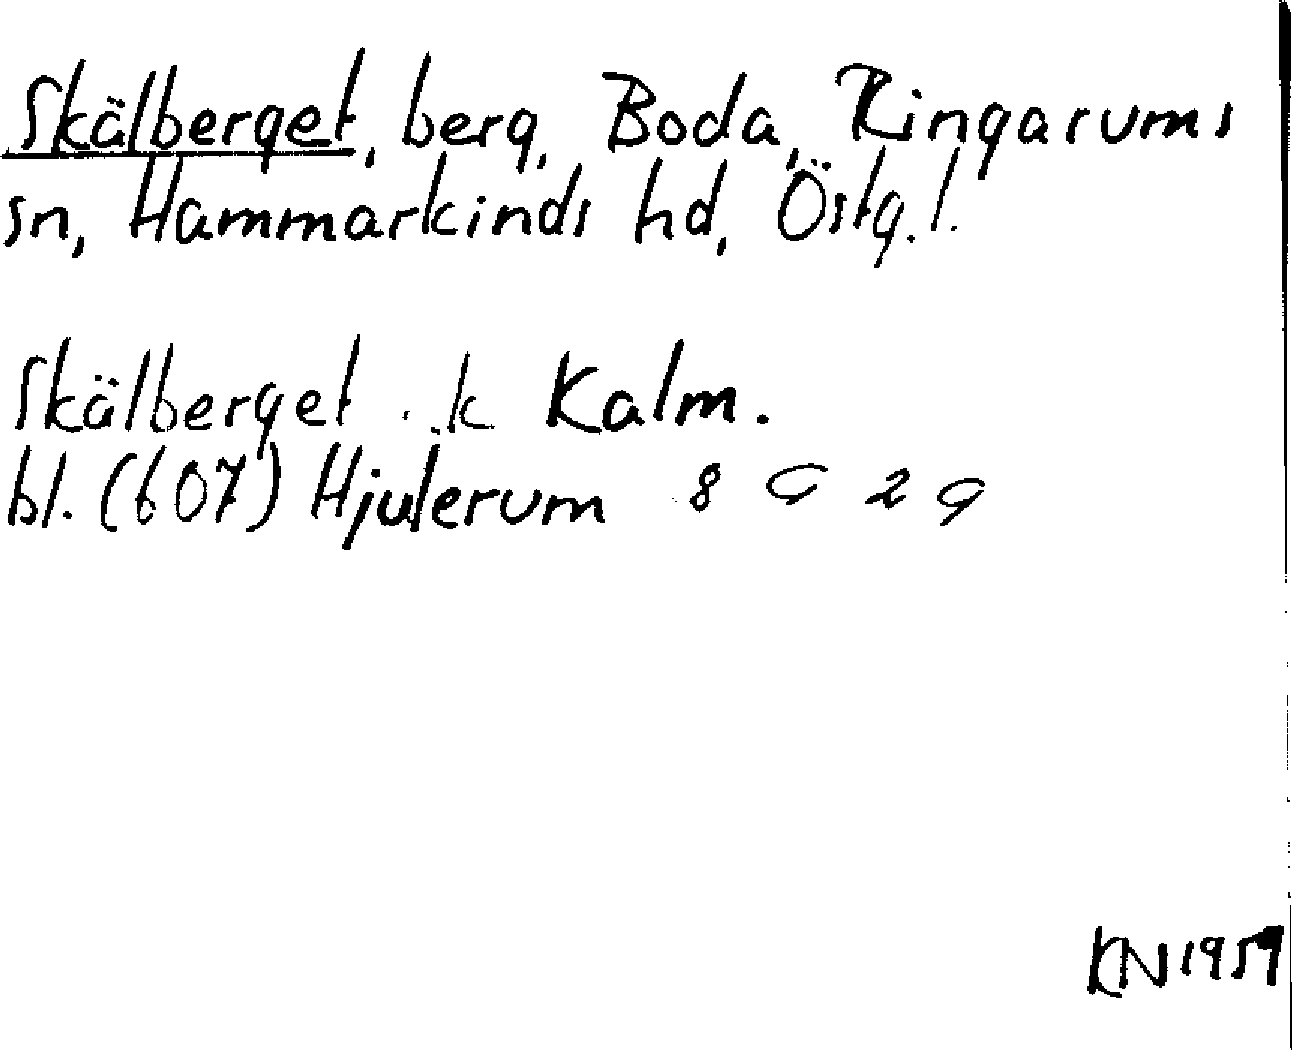 Skälberget, berg, Boda, Ringarums
sn, Hammarkinds hd, Östg.l.
Skälberget .. k Kalm.
bl. (607) Hjulerum 8 G 2 g
KN 1959